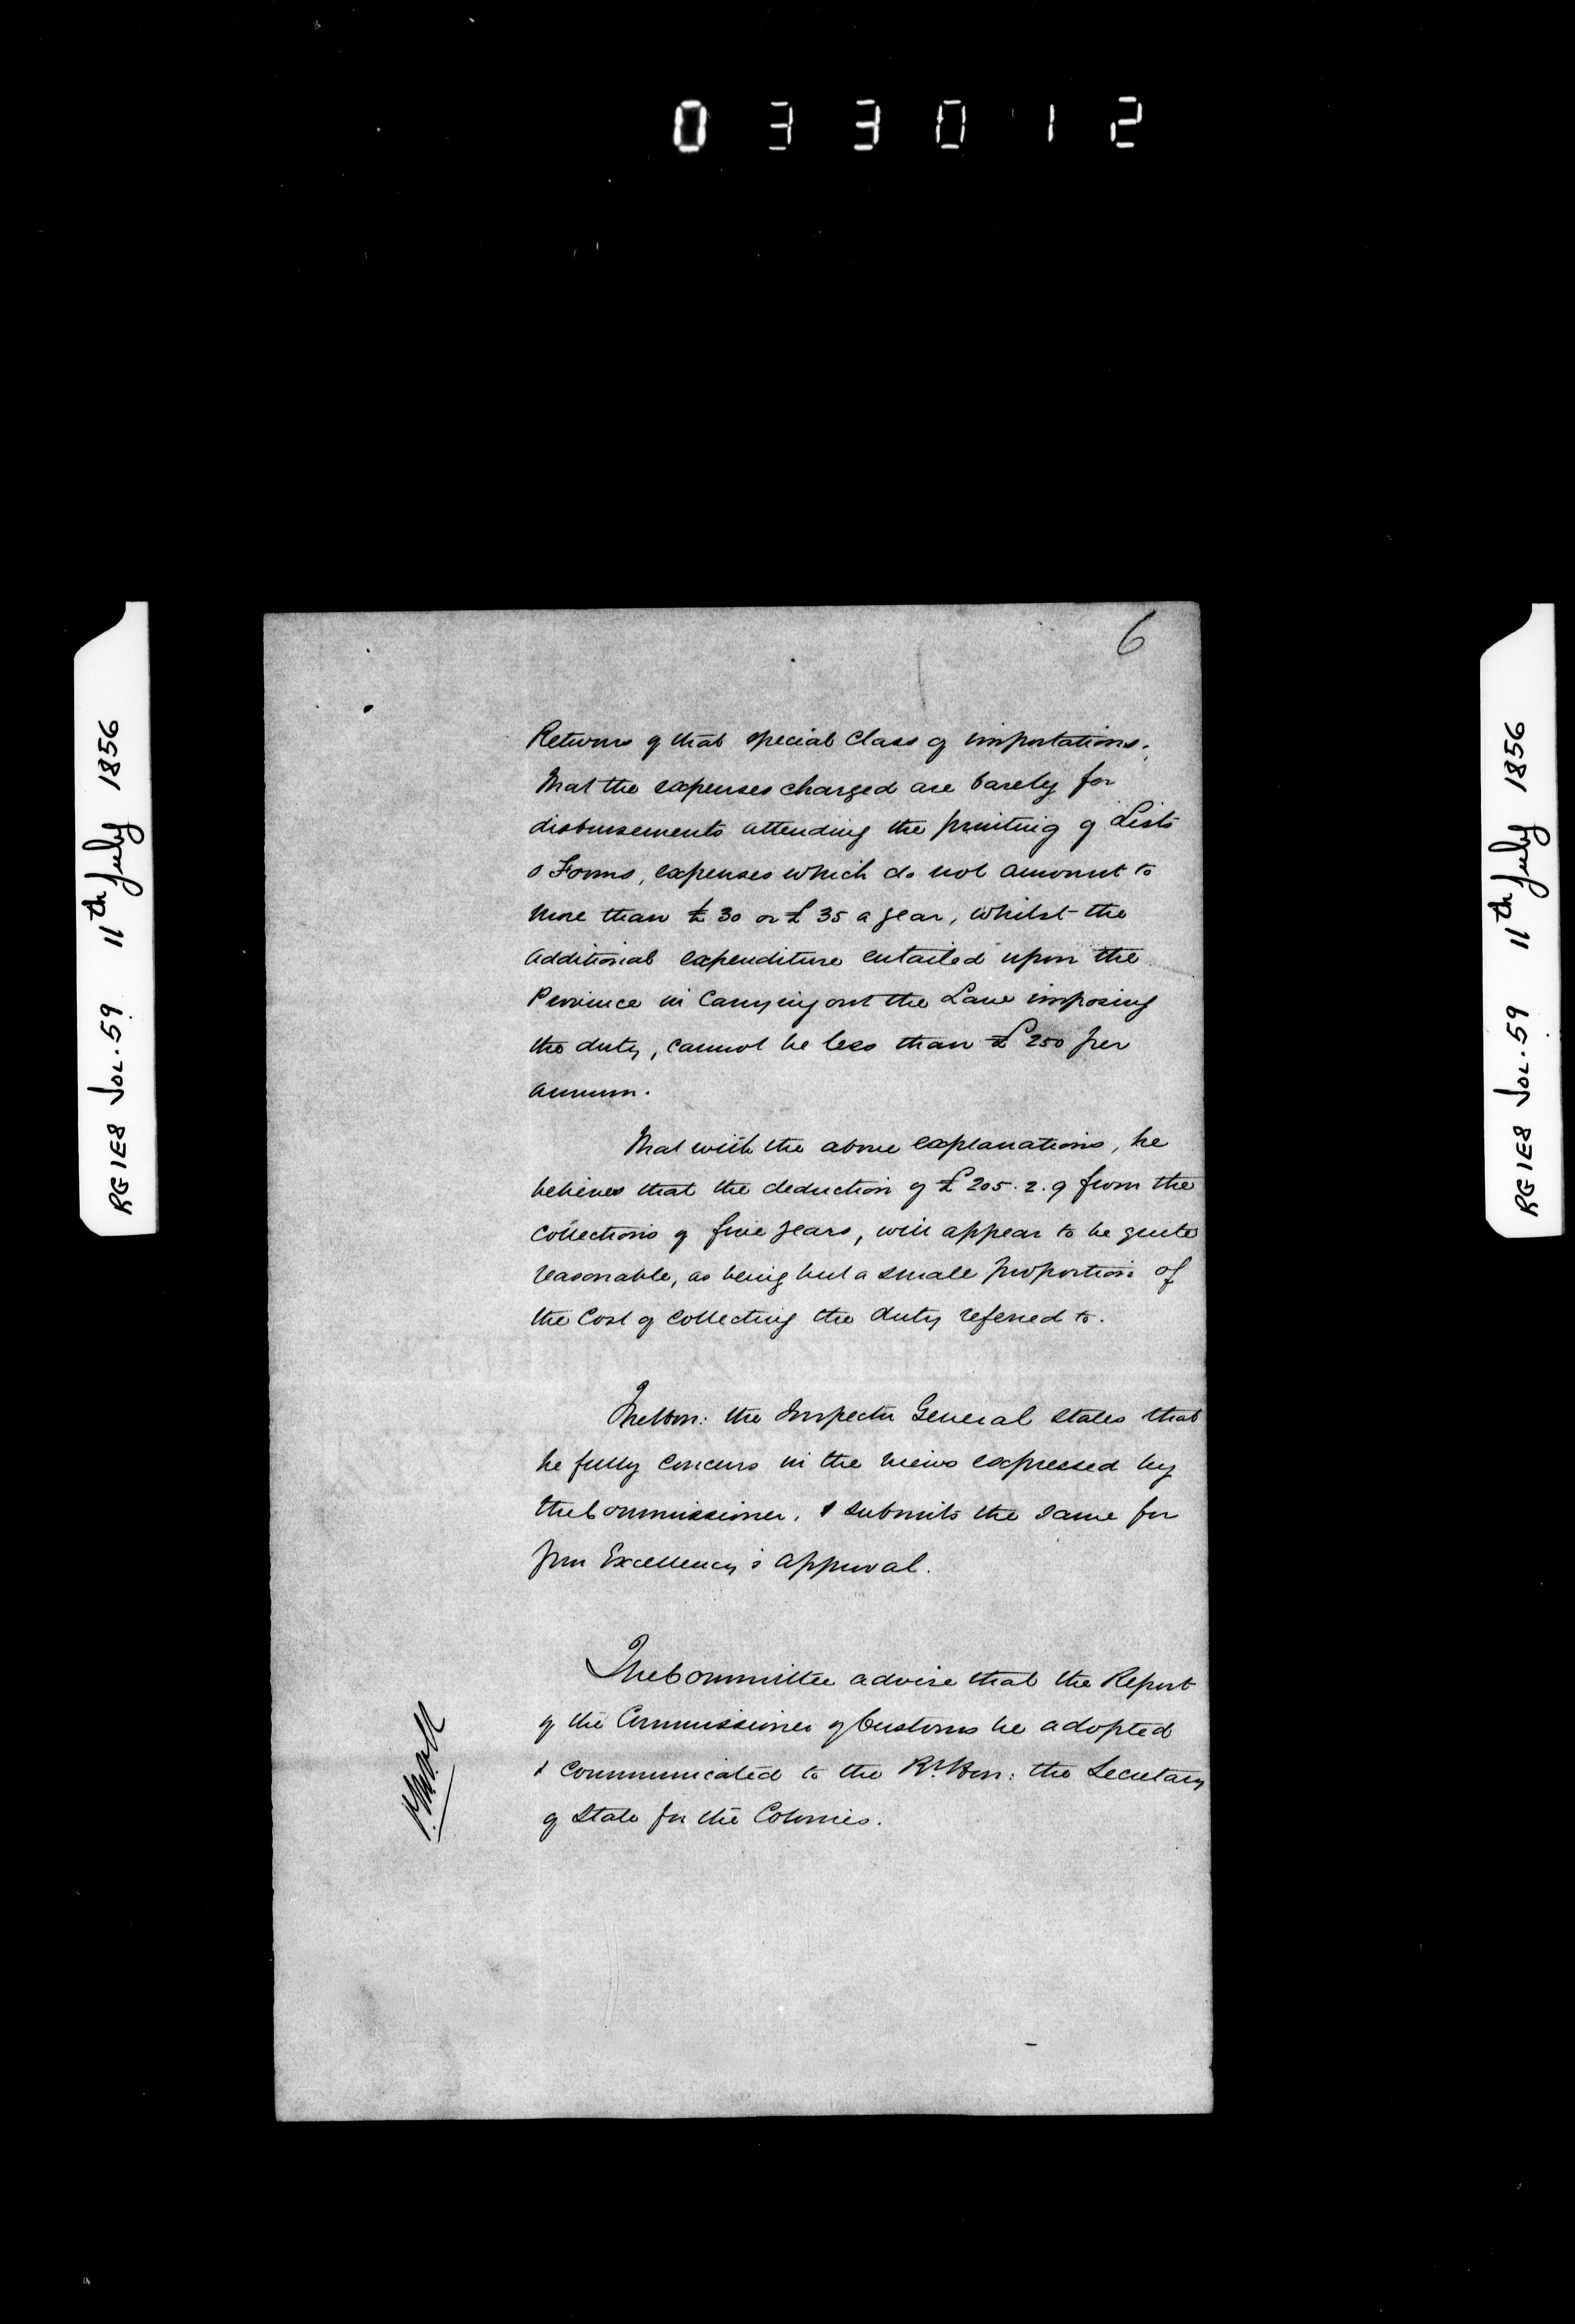 033012
RG1E8 Vol. 59 11th July 1856
6
Returns of that special Class of importations.
That the expenses charged are barely for
disbursements attending the printing of Lists
& Forms, expenses which do not amount to
more than £30 or £35 a year, whilst the
additional expenditure entailed upon the
Province in Carrying out the Law imposing
the duty, cannot be less than £250 per
annum.
That with the above explanations, he
believes that the deduction of £205.2.9 from the
Collections of five years, will appear to be quite
reasonable, as being but a small proportion of
the Cost of Collecting the duty referred to.
The Hon: the Inspector General states that
he fully concurs in the views expressed by
the Commissioner, & submits the same for
Your Excellency's approval.
The Committee advise that the Report
of the Commissioner of Customs be adopted
& Communicated to the Rt. Hon: the Secretary
of State for the Colonies.
RG1E8 Vol. 59 11th July 1856